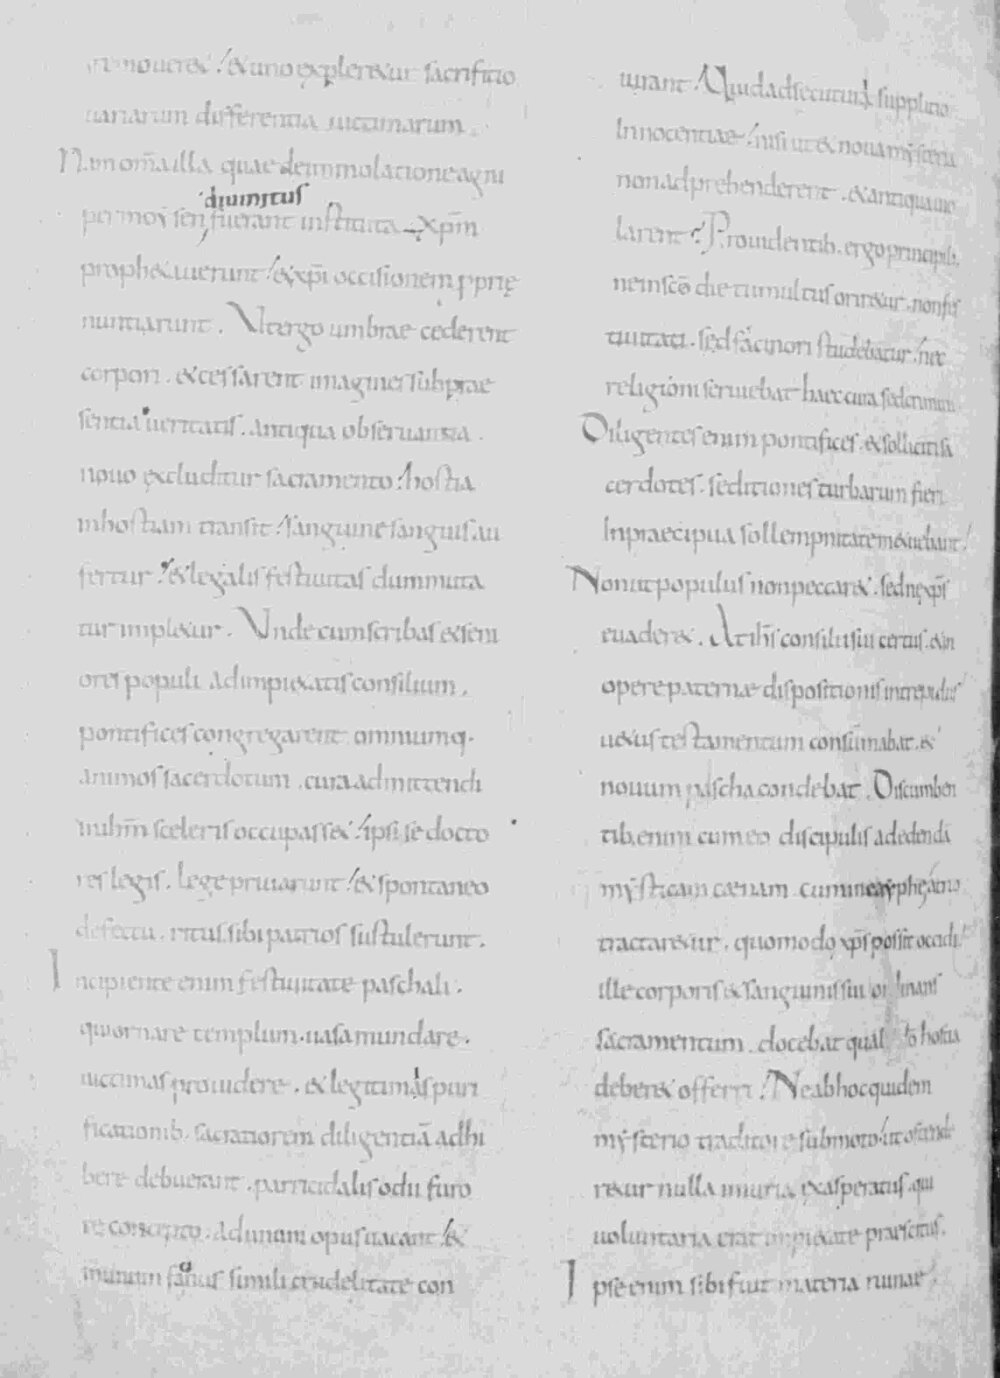 remoueret · et uno expleretur sacrificio
uariarum differentia uictimarum .
Nam om̄a illa quae de immolatione agni
diuinitus
per moẏsen fuerant instituta xp̄m
prophetauerunt · et xp̄i occisionem pprię
nuntiarunt . Ut ergo umbrae cederent
corpori . et cessarent imagines sub prae
sentia ueritatis . antiqua obseruantia .
nouo excluditur sacramento · hostia
in hostiam transit · sanguine sanguis au
fertur · et legalis festiuitas dum muta
tur impletur . Unde cum scribas et seni
ores populi ad impietatis consilium .
pontifices congregarent omniumq·
animos sacerdotum . cura admittendi
in ihm̄ sceleris occupasset · ipsi se docto
res legis . lege priuarunt · et spontaneo
defectu . ritus sibi patrios sustulerunt .
Incipiente enim festiuitate paschali .
qui ornare templum . uasa mundare .
uictimas prouidere . et legitimas puri
ficationib· sacratiorem diligentiā adhi
bere debuerant . parricidalis odii furo
re concepto . ad unum opus uacant · et
in unum facinus simili crudelitate con
iurant . Quid adsecuturi supplicio
Innocentiae · nisi ut et noua mẏsteria
non adprehenderent . et antiqua uio
larent · Prouidentib· ergo principib·
ne in scō die tumultus oriretur . non fes
tiuitati . sed facinori studebatur · nec
religioni seruiebat haec cura sed crimini
Diligentes enim pontifices . et solliciti sa
cerdotes . seditiones turbarum fieri
In praecipua sollempnitate metuebant ·
Non ut populus non peccaret . sed ne xp̄s
euaderet . At ih̄s consilii sui certus . et in
opere paternae dispositionis intrepidus
uetus testamentum consūmabat . et
nouum pascha condebat . Discumben
tib· enim cum eo discipulis ad edendā
mẏsticam caenam cum in caẏphę atrio
tractaretur . quomodo xp̄s possit occidi ·
ille corporis et sanguinis sui ordinans
sacramentum . docebat qualis dō hostia
deberet offerri · Ne ab hoc quidem
mẏsterio traditore submoto · ut ostende
retur nulla iniuria exasperatus . qui
uoluntaria erat impietate praescitus .
Ipse enim sibi fuit materia ruinae ·